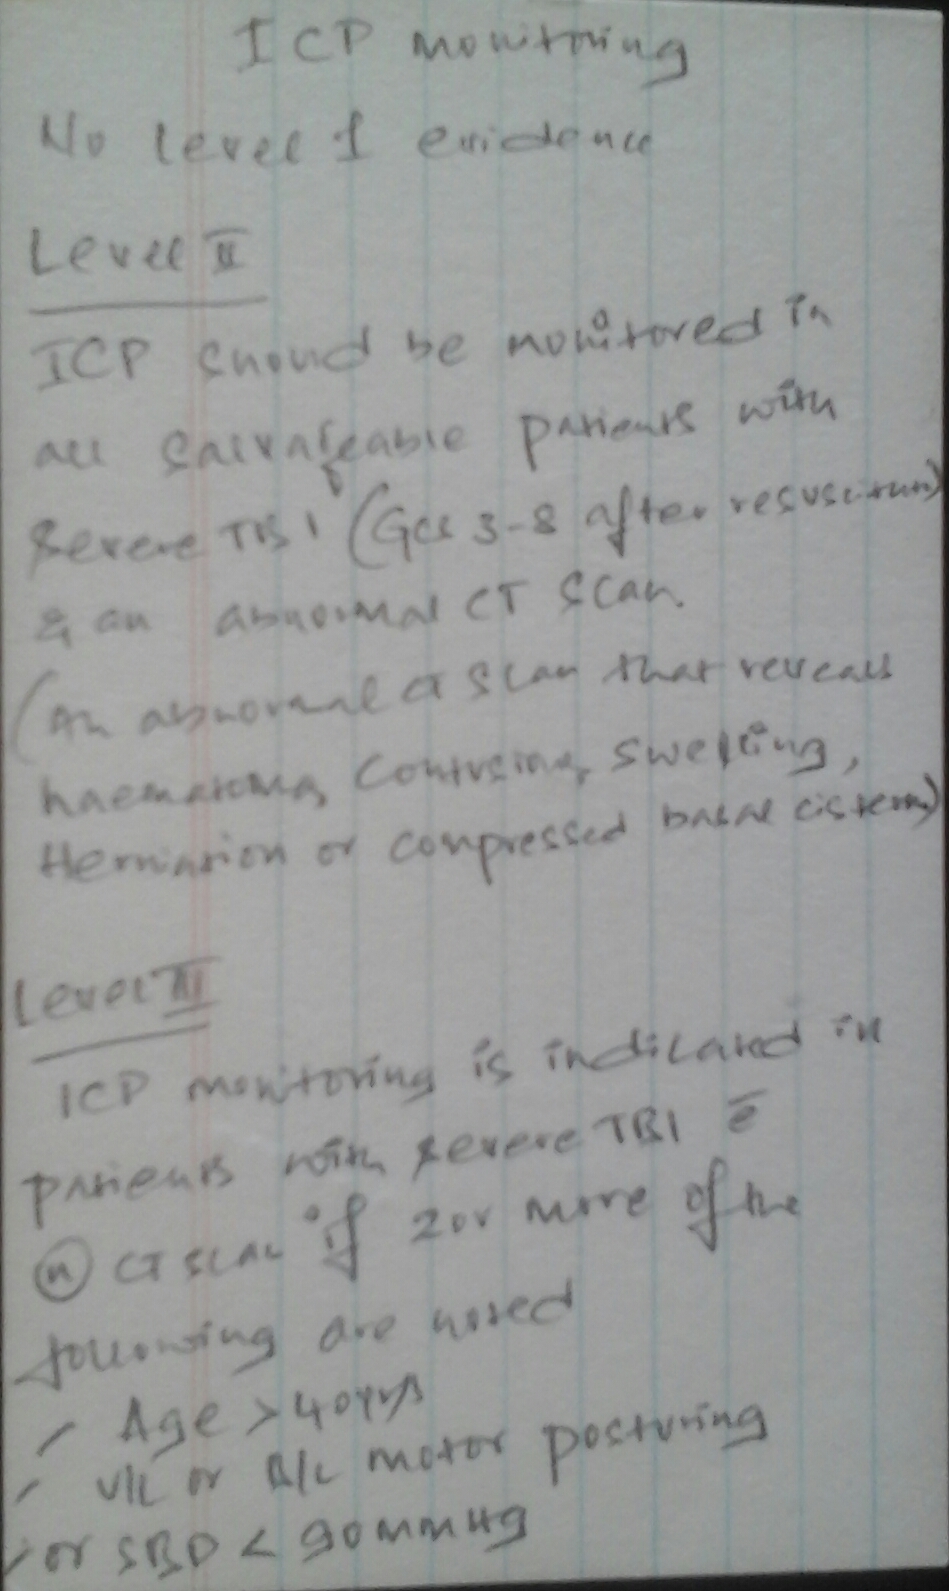 ICP monitoring
No level I evidence
Level II
ICP should be monitored in
all salvageable patients with
severe TBI (GCS 3-8 after resuscitation)
& an abnormal CT scan.
(An abnormal CT scan that reveals
haematoma, contusions, swelling,
Herniation or compressed basal cisterns)
Level III
ICP monitoring is indicated in
patients with severe TBI c̄
(n) CT scan if 2 or more of the
following are noted
- Age > 40yrs
- U/L or B/L motor posturing
- or SBP < 90mmHg